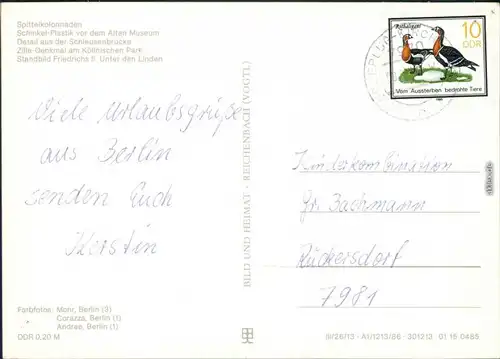 Spittelkolonnaden
Schinkel-Plastik vor dem Alten Museum
Detail aus der Schleusenbrücke
Zille-Denkmal am Köllnischen Park
Standbild Friedrichs II. Unter den Linden
Viele Urlaubsgrüße
aus Berlin
senden Euch
Kerstin
Farbfotos: Mohr, Berlin (3)
Corazza, Berlin (1)
Andree, Berlin (1)
DDR 0,20 M
BILD UND HEIMAT · REICHENBACH (VOGTL)
Rothalsgans
10
DDR
Vom Aussterben bedrohte Tiere
Kinderkombination
Gr. Bachmann
Rückersdorf
7981
III/26/13 · A1/1213/86 · 301213 01 15 0485